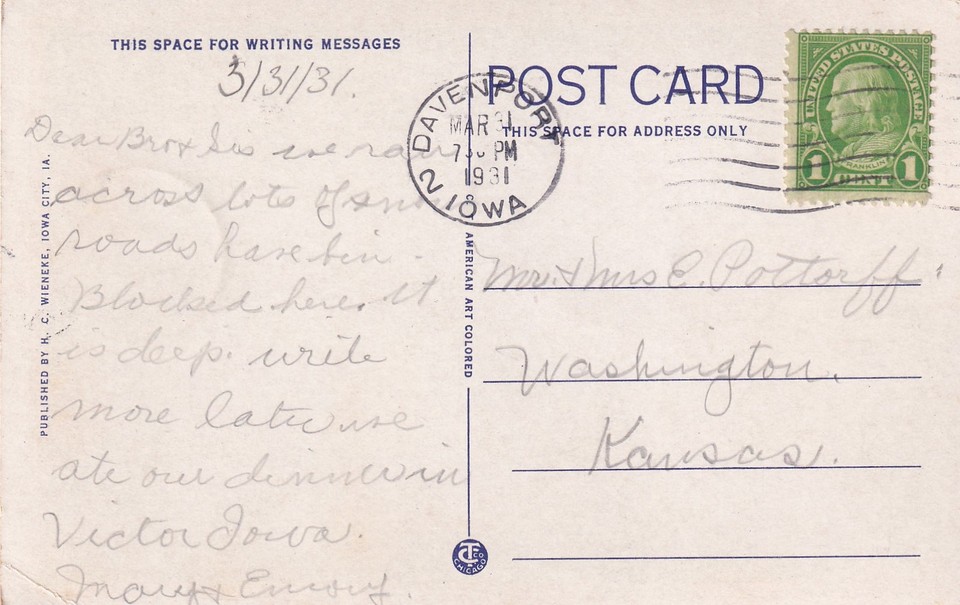 THIS SPACE FOR WRITING MESSAGES
3/31/31.
Dear Bro & Sis we ran
across lots of snow
roads have bin
Blocked here. It
is deep. write
more later we
ate our dinner in
Victor Iowa.
Mary & Emory.
PUBLISHED BY H. C. WIENEKE, IOWA CITY, IA.
C. T. AMERICAN ART COLORED
POST CARD
THIS SPACE FOR ADDRESS ONLY
DAVENPORT
MAR 31
7 PM
1931
2 IOWA
UNITED STATES POSTAGE
FRANKLIN
1 1
Mr. & Mrs E. Pottorff
Washington.
Kansas.
CT CO
CHICAGO